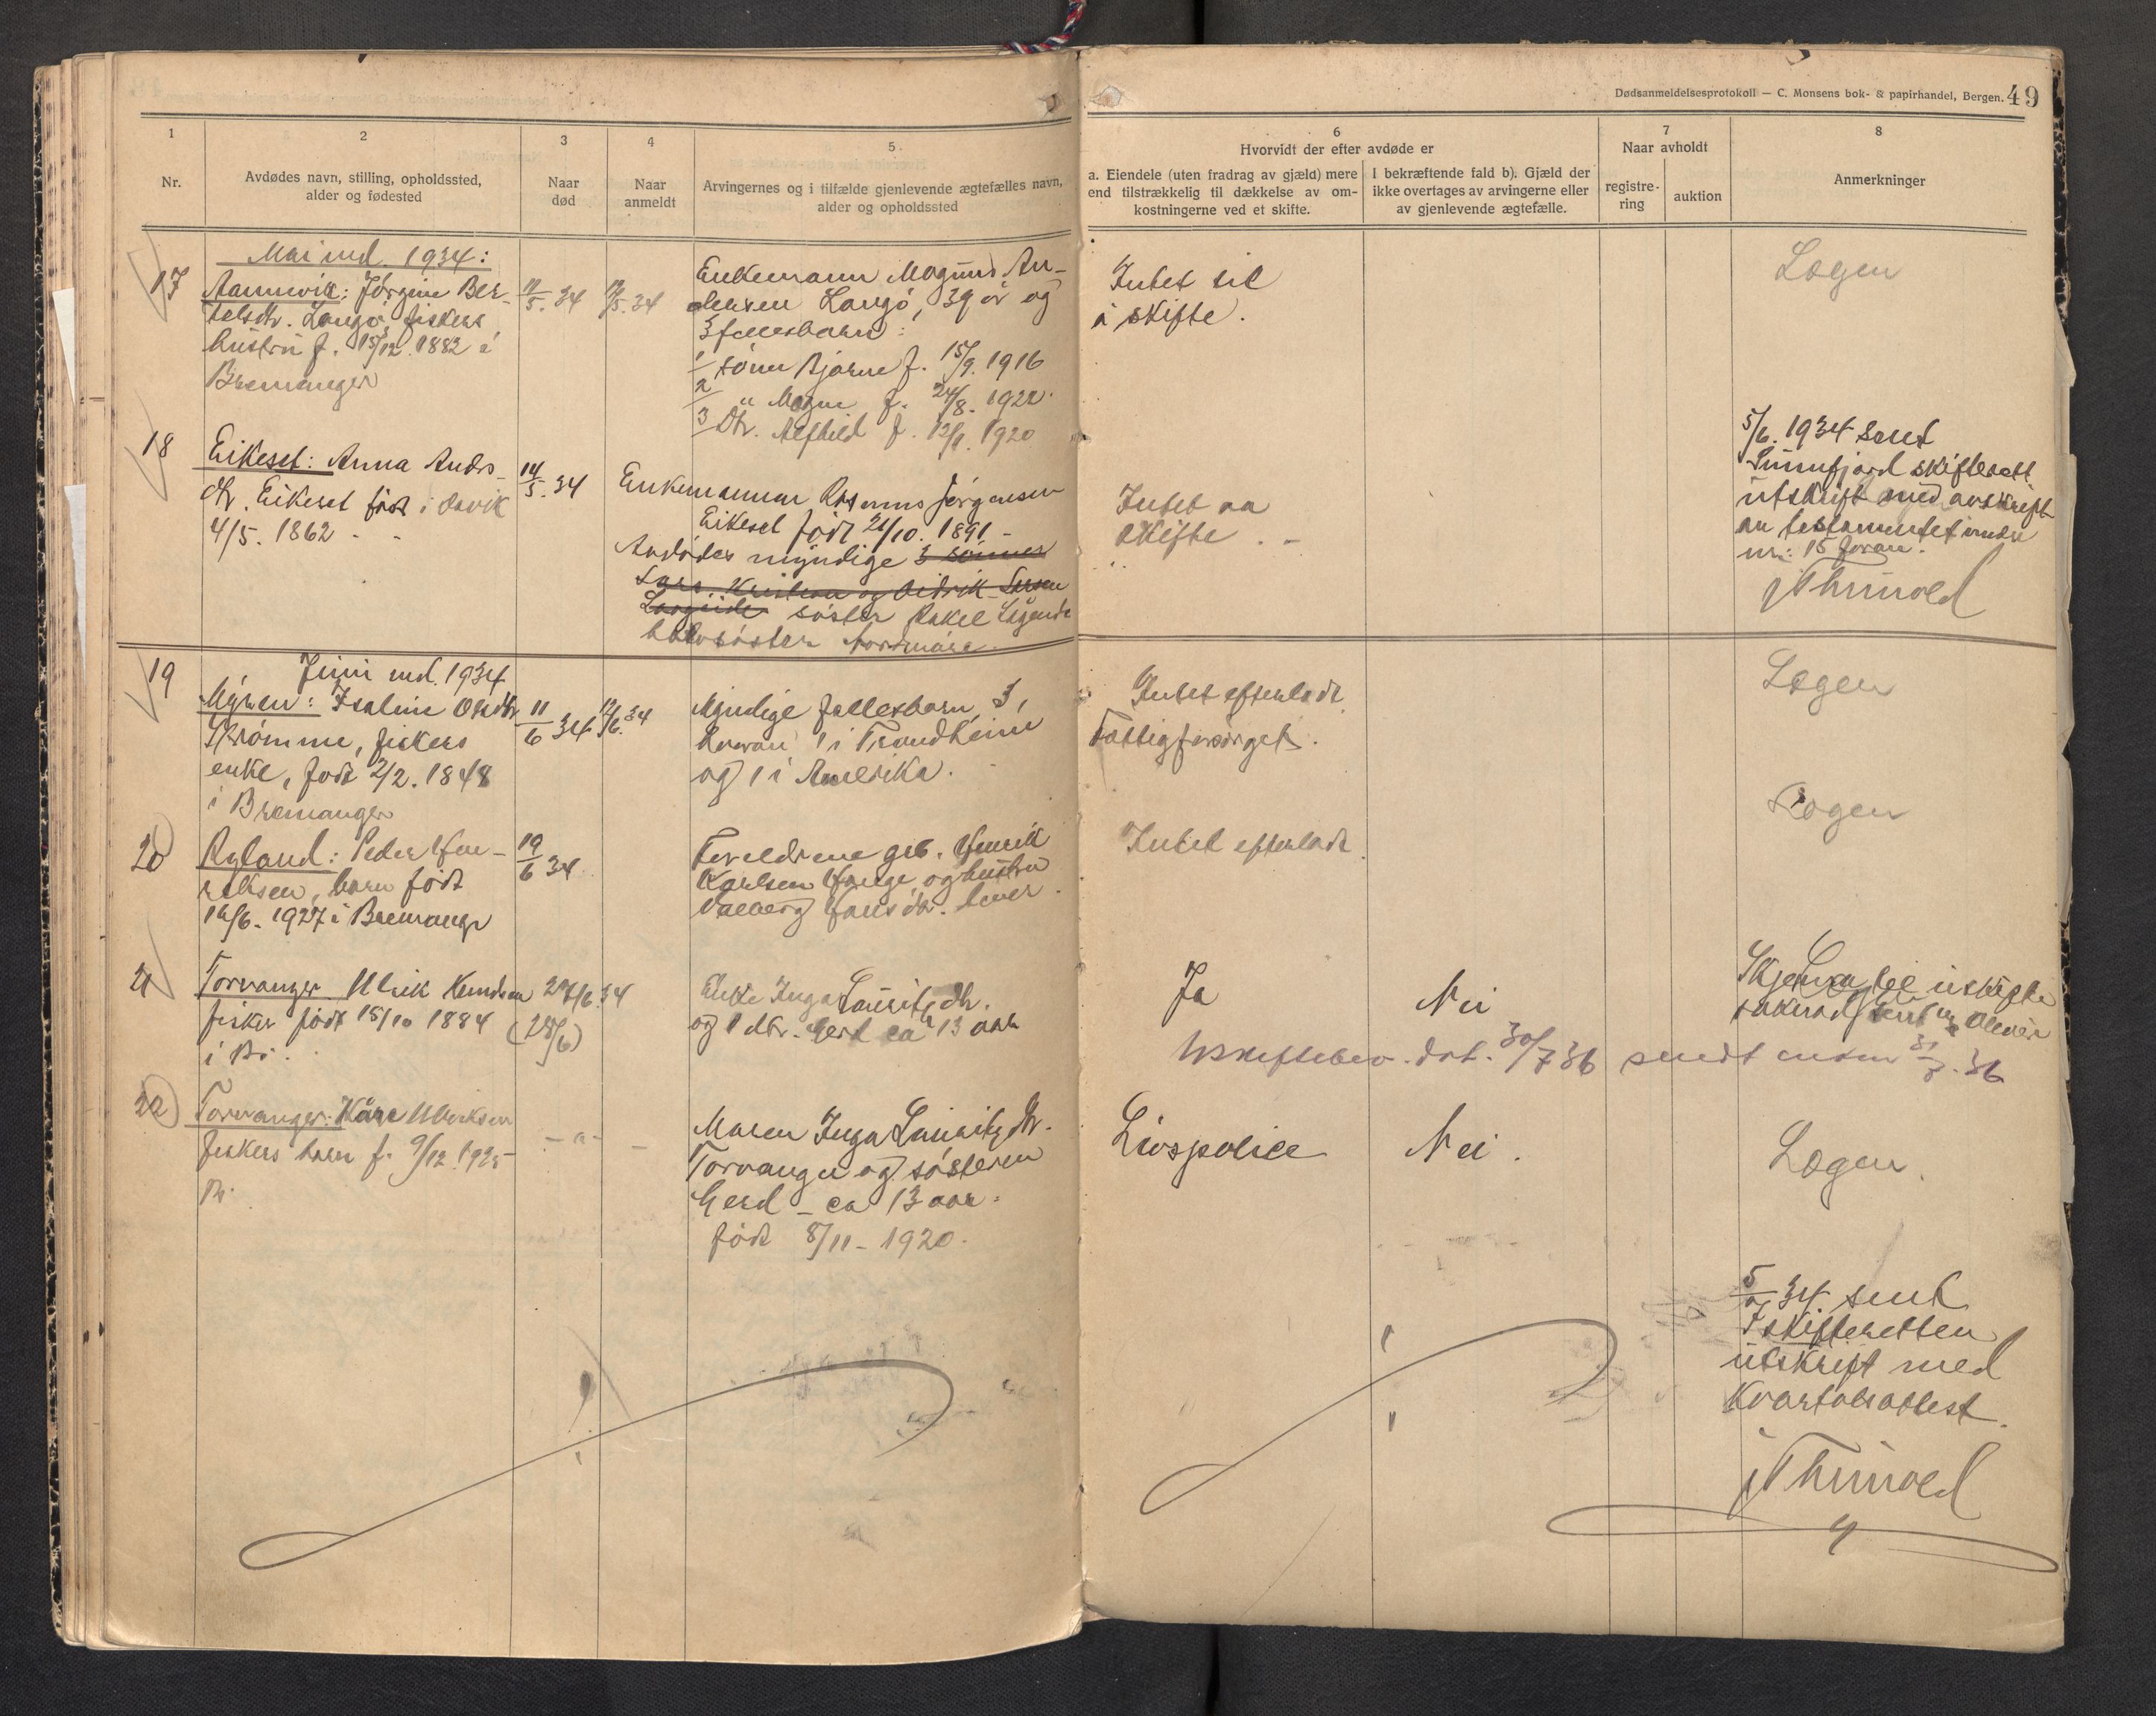 Dødsanmeldelsesprotokoll — C. Monsens bok- & papirhandel, Bergen. 49
1
Nr.
2
Avdødes navn, stilling, opholdssted,
alder og fødested
3
Naar
død
4
Naar
anmeldt
5
Arvingernes og i tilfælde gjenlevende ægtefælles navn,
alder og opholdssted
6
Hvorvidt der efter avdøde er
a. Eiendele (uten fradrag av gjæld) mere
end tilstrækkelig til dækkelse av om-
kostningerne ved et skifte.
I bekræftende fald b). Gjæld der
ikke overtages av arvingerne eller
av gjenlevende ægtefælle.
7
Naar avholdt
registre-
ring
auktion
8
Anmerkninger
Mai md. 1934:
17
Jørgine Ber-
telsdtr. Langø, fiskers
hustru f. 15/12. 1882 i
Bremanger
11/5. 34
Enkemann Magnus An-
dersen Langø, 39 år og
3 fellesbarn:
1 sønn Bjarne f. 15/9. 1916
2 " Magn f. 24/8. 1922.
3 Dtr. Alfhild f. 1920
Intet til
å skifte.
Lægen
18
Eikeset: Anna Andrs-
dtr. Eikeset født i Davik
4/5. 1862 - -
14/5. 34
Enkemannen Rasmus Jørgensen
Eikeset født 21/10. 1891 -
Avdødes myndige 3 sønner
Lars, Kristian og Didrik Larsen
søster Rakel
halvsøster
Intet aa
skifte . -
5/6. 1934 sent
Sunnfjord skifterett
utskrift med avskrift
av testamentet under
nr.: 15 foran.
JThunold
Juni md. 1934
19
Myren: Isaline Olsdtr
Strømme, fiskers
enke, født 2/2. 1848
i Bremanger
11/6 34
12/6. 34
Myndige fellesbarn 3,
hvorav 1 i Trondheim
og 1 i Amerika.
Intet efterladt
Fattigforsørget.
Lægen
20
Ryland: Peder Hen-
riksen, barn født
16/6. 1927 i Bremangr
19/6 34
Foreldrene grb. Henrik
Karlsen Hauge og hustru
Valborg Hansdtr. lever.
Intet efterladt.
Lægen
21
Torvanger Ulrik Knudsen
fisker født 15/10 1884
i Br.
(28/6)
Enke Inga Lauritzdtr.
og 1 dtr. Gerd ca 13 aar
Ja
Nei
Uskiftebev. dat. 30/7 36 sendt enken 31/7. 36
22
Torvanger: Kåre Ulriksen
fiskers barn f. 9/12. 1925
Br.
- " -
-
Moren Inga Lauritzdtr.
Torvanger og søsteren
Gerd - ca 13 aar.
født 8/11 - 1920.
Livspolice
Nei.
Lægen.
34 sent
Skifteretten
utskrift med
Kvartalsattest.
JThunold